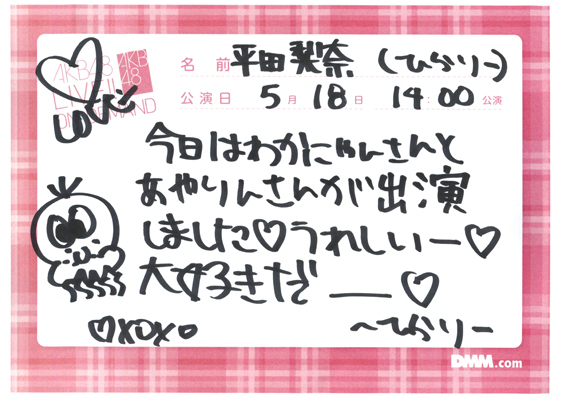 AKB48 AKB48
LIVE!!
ON DEMAND
LOVE
名前 平田梨奈 (ひらりー)
公演日 5月18日 14:00 公演
今日はわかにゃんさんと
あやりんさんが出演
しました♡うれしいー♡
大好きだ__♡
♡XOX♡ 〜ひらりー
DMM.com